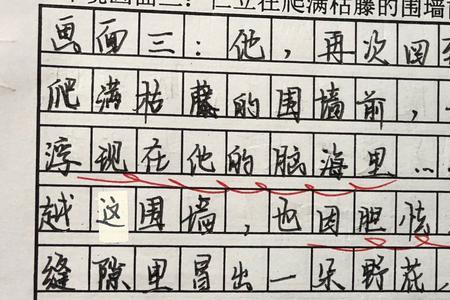 境画面三：伫立在爬满枯藤的围墙前
画面三：他，再次回
爬满枯藤的围墙前，
浮现在他的脑海里……
越这围墙，也因胆怯
缝隙里冒出一朵野花，